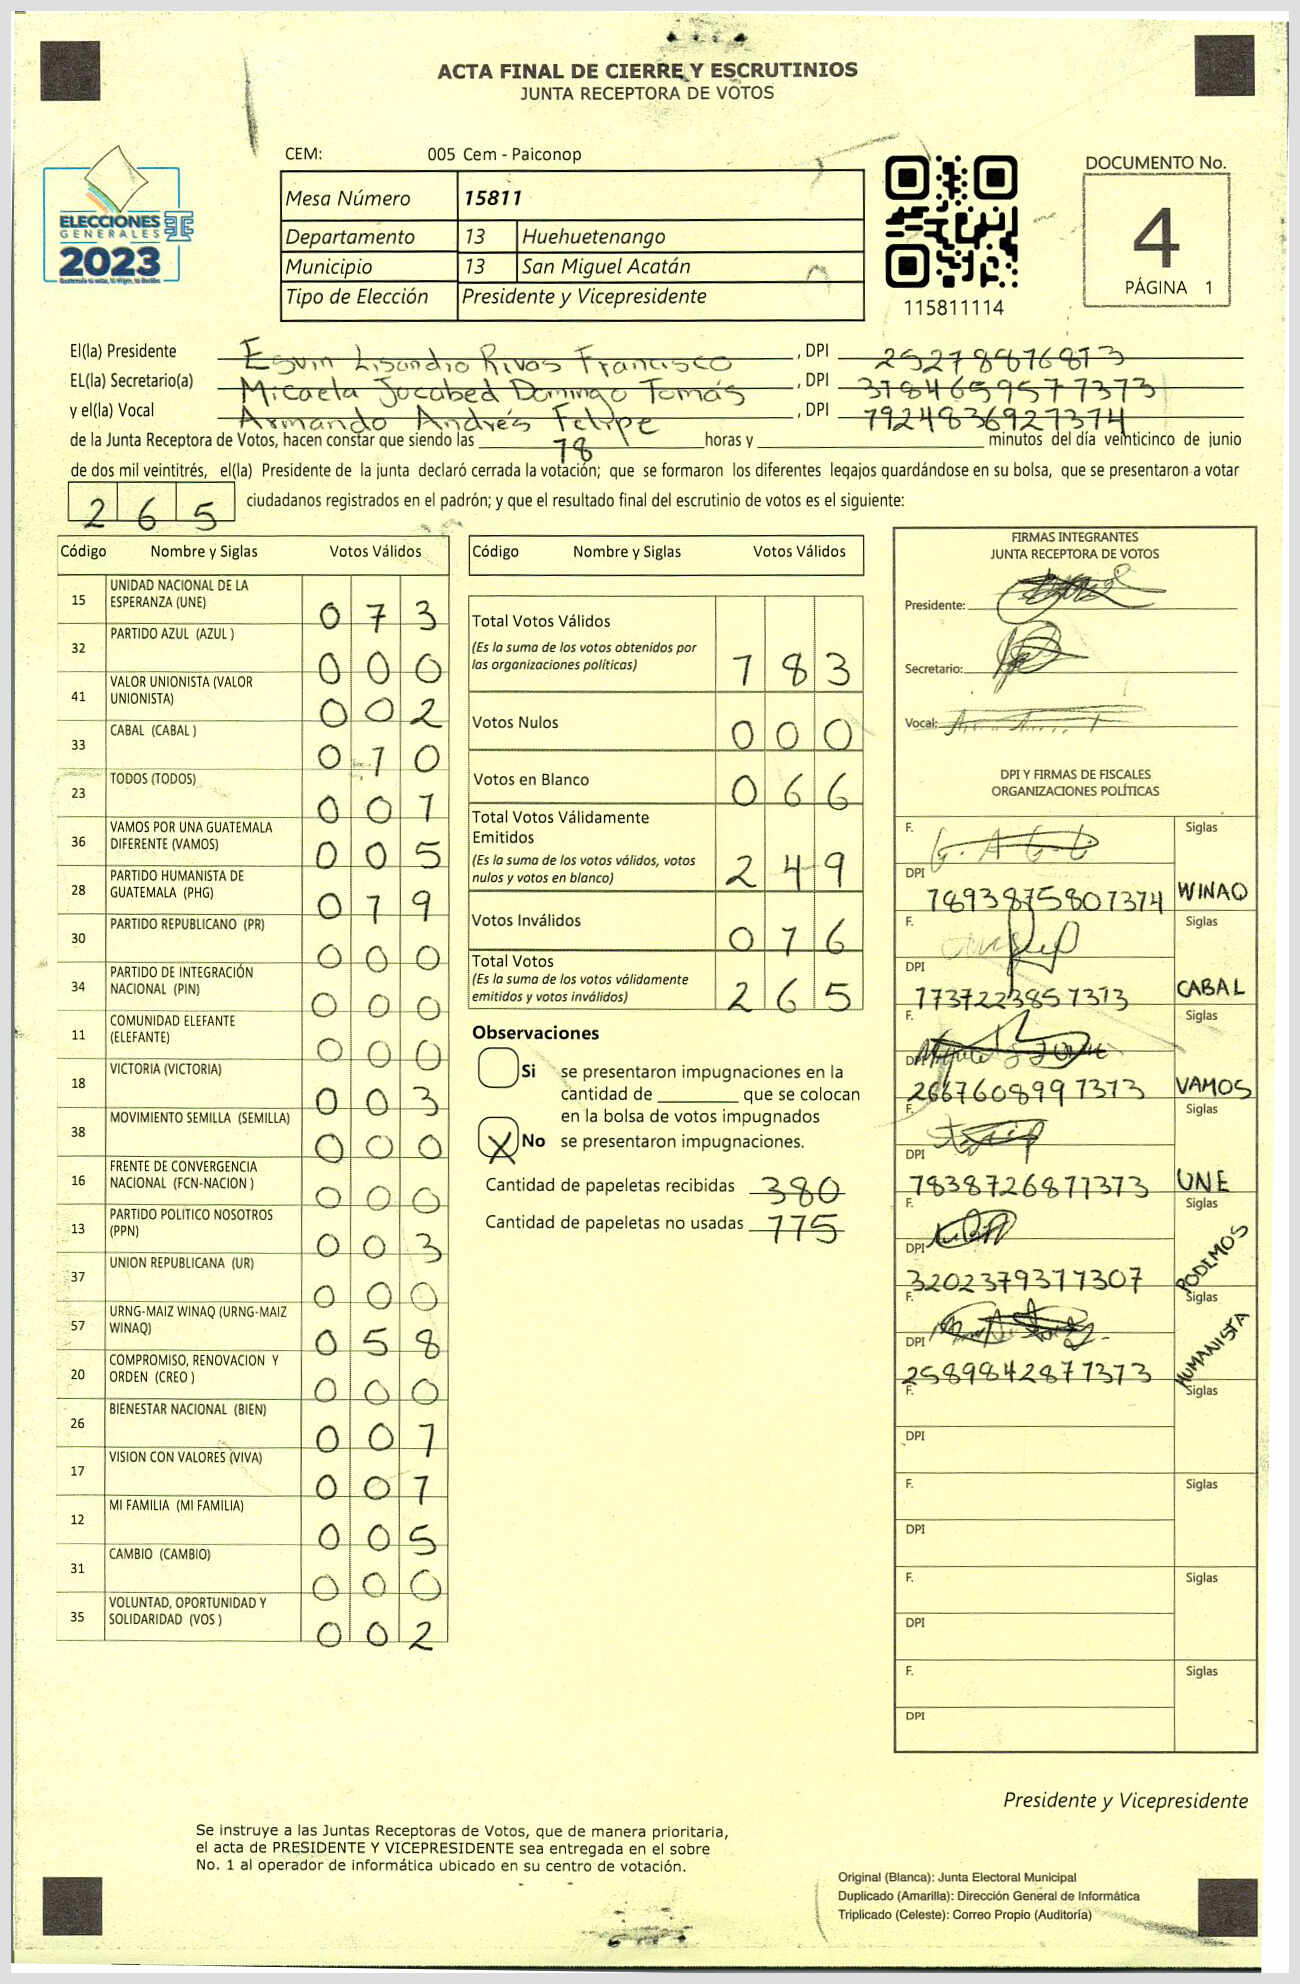 ACTA FINAL DE CIERRE Y ESCRUTINIOS
JUNTA RECEPTORA DE VOTOS
CEM: 005 Cem - Paiconop
DOCUMENTO No.
4
PÁGINA 1
ELECCIONES
GENERALES
2023
Mesa Número 15811
Departamento 13 Huehuetenango
Municipio 13 San Miguel Acatán
Tipo de Elección Presidente y Vicepresidente
115811114
El(la) Presidente Esvin Lisandro Rivas Francisco , DPI
EL(la) Secretario(a) Micaela Jocabed Domingo Tomás , DPI 3184659571313
y el(la) Vocal Armando Andrés Felipe , DPI 1924836921314
de la Junta Receptora de Votos, hacen constar que siendo las 18 horas y minutos del día veinticinco de junio
de dos mil veintitrés, el(la) Presidente de la junta declaró cerrada la votación; que se formaron los diferentes legajos guardándose en su bolsa, que se presentaron a votar
265 ciudadanos registrados en el padrón; y que el resultado final del escrutinio de votos es el siguiente:
Código Nombre y Siglas Votos Válidos
15 UNIDAD NACIONAL DE LA ESPERANZA (UNE) 073
32 PARTIDO AZUL (AZUL ) 000
41 VALOR UNIONISTA (VALOR UNIONISTA) 002
33 CABAL (CABAL ) 010
23 TODOS (TODOS) 001
36 VAMOS POR UNA GUATEMALA DIFERENTE (VAMOS) 005
28 PARTIDO HUMANISTA DE GUATEMALA (PHG) 019
30 PARTIDO REPUBLICANO (PR) 000
34 PARTIDO DE INTEGRACIÓN NACIONAL (PIN) 000
11 COMUNIDAD ELEFANTE (ELEFANTE) 000
18 VICTORIA (VICTORIA) 003
38 MOVIMIENTO SEMILLA (SEMILLA) 000
16 FRENTE DE CONVERGENCIA NACIONAL (FCN-NACION ) 000
13 PARTIDO POLITICO NOSOTROS (PPN) 003
37 UNION REPUBLICANA (UR) 000
57 URNG-MAIZ WINAQ (URNG-MAIZ WINAQ) 058
20 COMPROMISO, RENOVACION Y ORDEN (CREO ) 000
26 BIENESTAR NACIONAL (BIEN) 001
17 VISION CON VALORES (VIVA) 001
12 MI FAMILIA (MI FAMILIA) 005
31 CAMBIO (CAMBIO) 000
35 VOLUNTAD, OPORTUNIDAD Y SOLIDARIDAD (VOS ) 002
Código Nombre y Siglas Votos Válidos
Total Votos Válidos 183
(Es la suma de los votos obtenidos por
las organizaciones políticas)
Votos Nulos 000
Votos en Blanco 066
Total Votos Válidamente
Emitidos 249
(Es la suma de los votos válidos, votos
nulos y votos en blanco)
Votos Inválidos 016
Total Votos 265
(Es la suma de los votos válidamente
emitidos y votos inválidos)
Observaciones
Si se presentaron impugnaciones en la
cantidad de ________ que se colocan
en la bolsa de votos impugnados
X No se presentaron impugnaciones.
Cantidad de papeletas recibidas 380
Cantidad de papeletas no usadas 115
FIRMAS INTEGRANTES
JUNTA RECEPTORA DE VOTOS
Presidente:
Secretario:
Vocal:
DPI Y FIRMAS DE FISCALES
ORGANIZACIONES POLÍTICAS
F. Siglas
DPI 1893875801314 WINAQ
F. Siglas
DPI 1737223851313 CABAL
F. Siglas
DPI 2667608991313 VAMOS
F. Siglas
DPI 1838726811313 UNE
F. Siglas
DPI 3202379311307 PODEMOS
F. Siglas
DPI 2589842871313 HUMANISTA
F. Siglas
DPI
F. Siglas
DPI
F. Siglas
DPI
F. Siglas
DPI
Presidente y Vicepresidente
Se instruye a las Juntas Receptoras de Votos, que de manera prioritaria,
el acta de PRESIDENTE Y VICEPRESIDENTE sea entregada en el sobre
No. 1 al operador de informática ubicado en su centro de votación.
Original (Blanca): Junta Electoral Municipal
Duplicado (Amarilla): Dirección General de Informática
Triplicado (Celeste): Correo Propio (Auditoría)